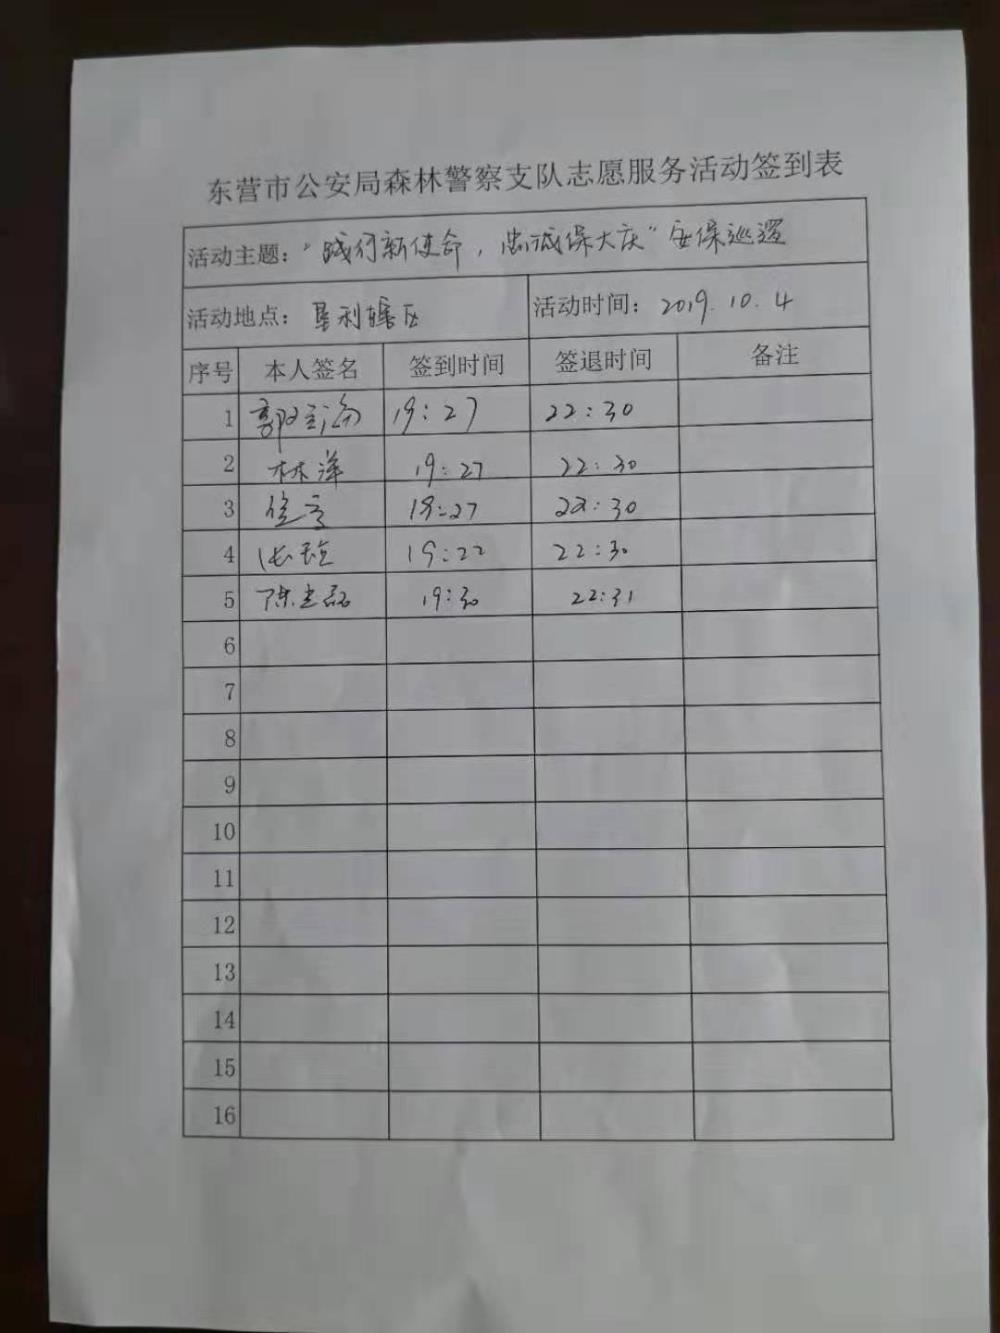 东营市公安局森林警察支队志愿服务活动签到表
活动主题：“践行新使命，忠诚保大庆”安保巡逻
活动地点：垦利辖区 活动时间：2019.10.4
序号 本人签名 签到时间 签退时间 备注
1 郭 19:27 22:30
2 林洋 19:27 22:30
3 19:27 22:30
4 19:22 22:30
5 陈志磊 19:30 22:31
6
7
8
9
10
11
12
13
14
15
16